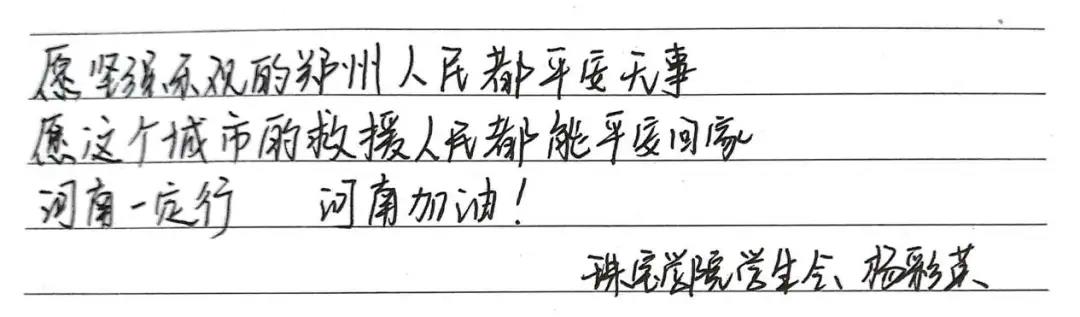 愿坚强乐观的郑州人民都平安无事
愿这个城市的救援人民都能平安回家
河南一定行 河南加油！
珠宝学院学生会 杨彩英